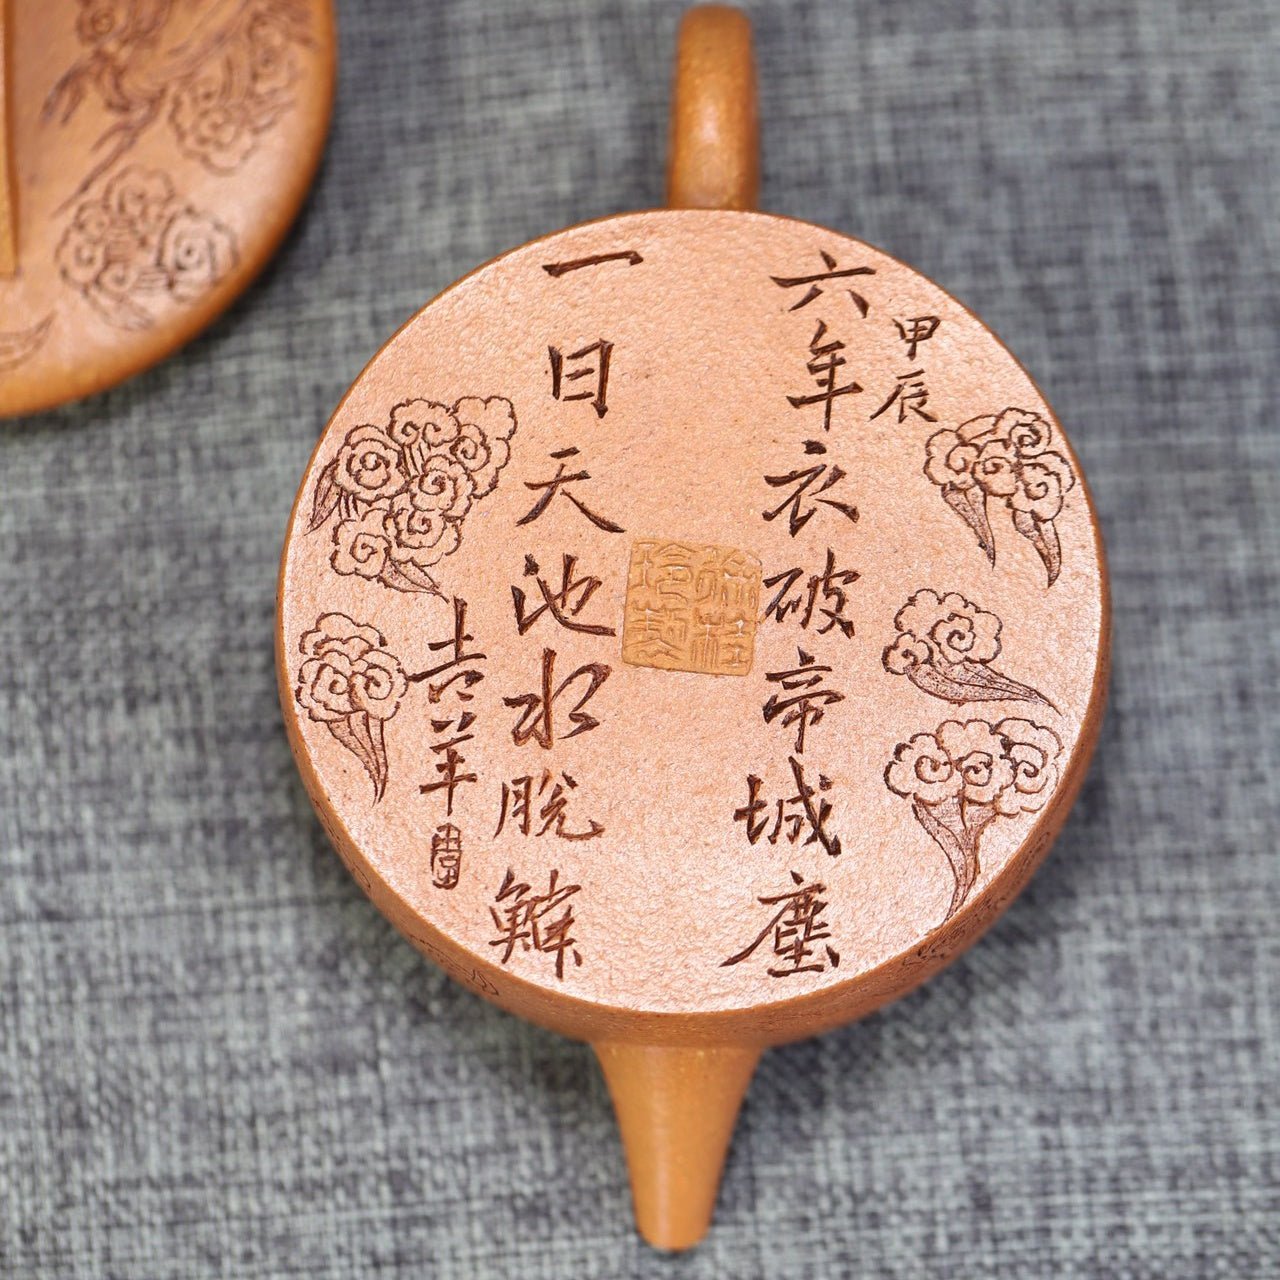 甲辰
六年衣破帝城塵
一日天池水脫鱗
吉羊
桂
玲製